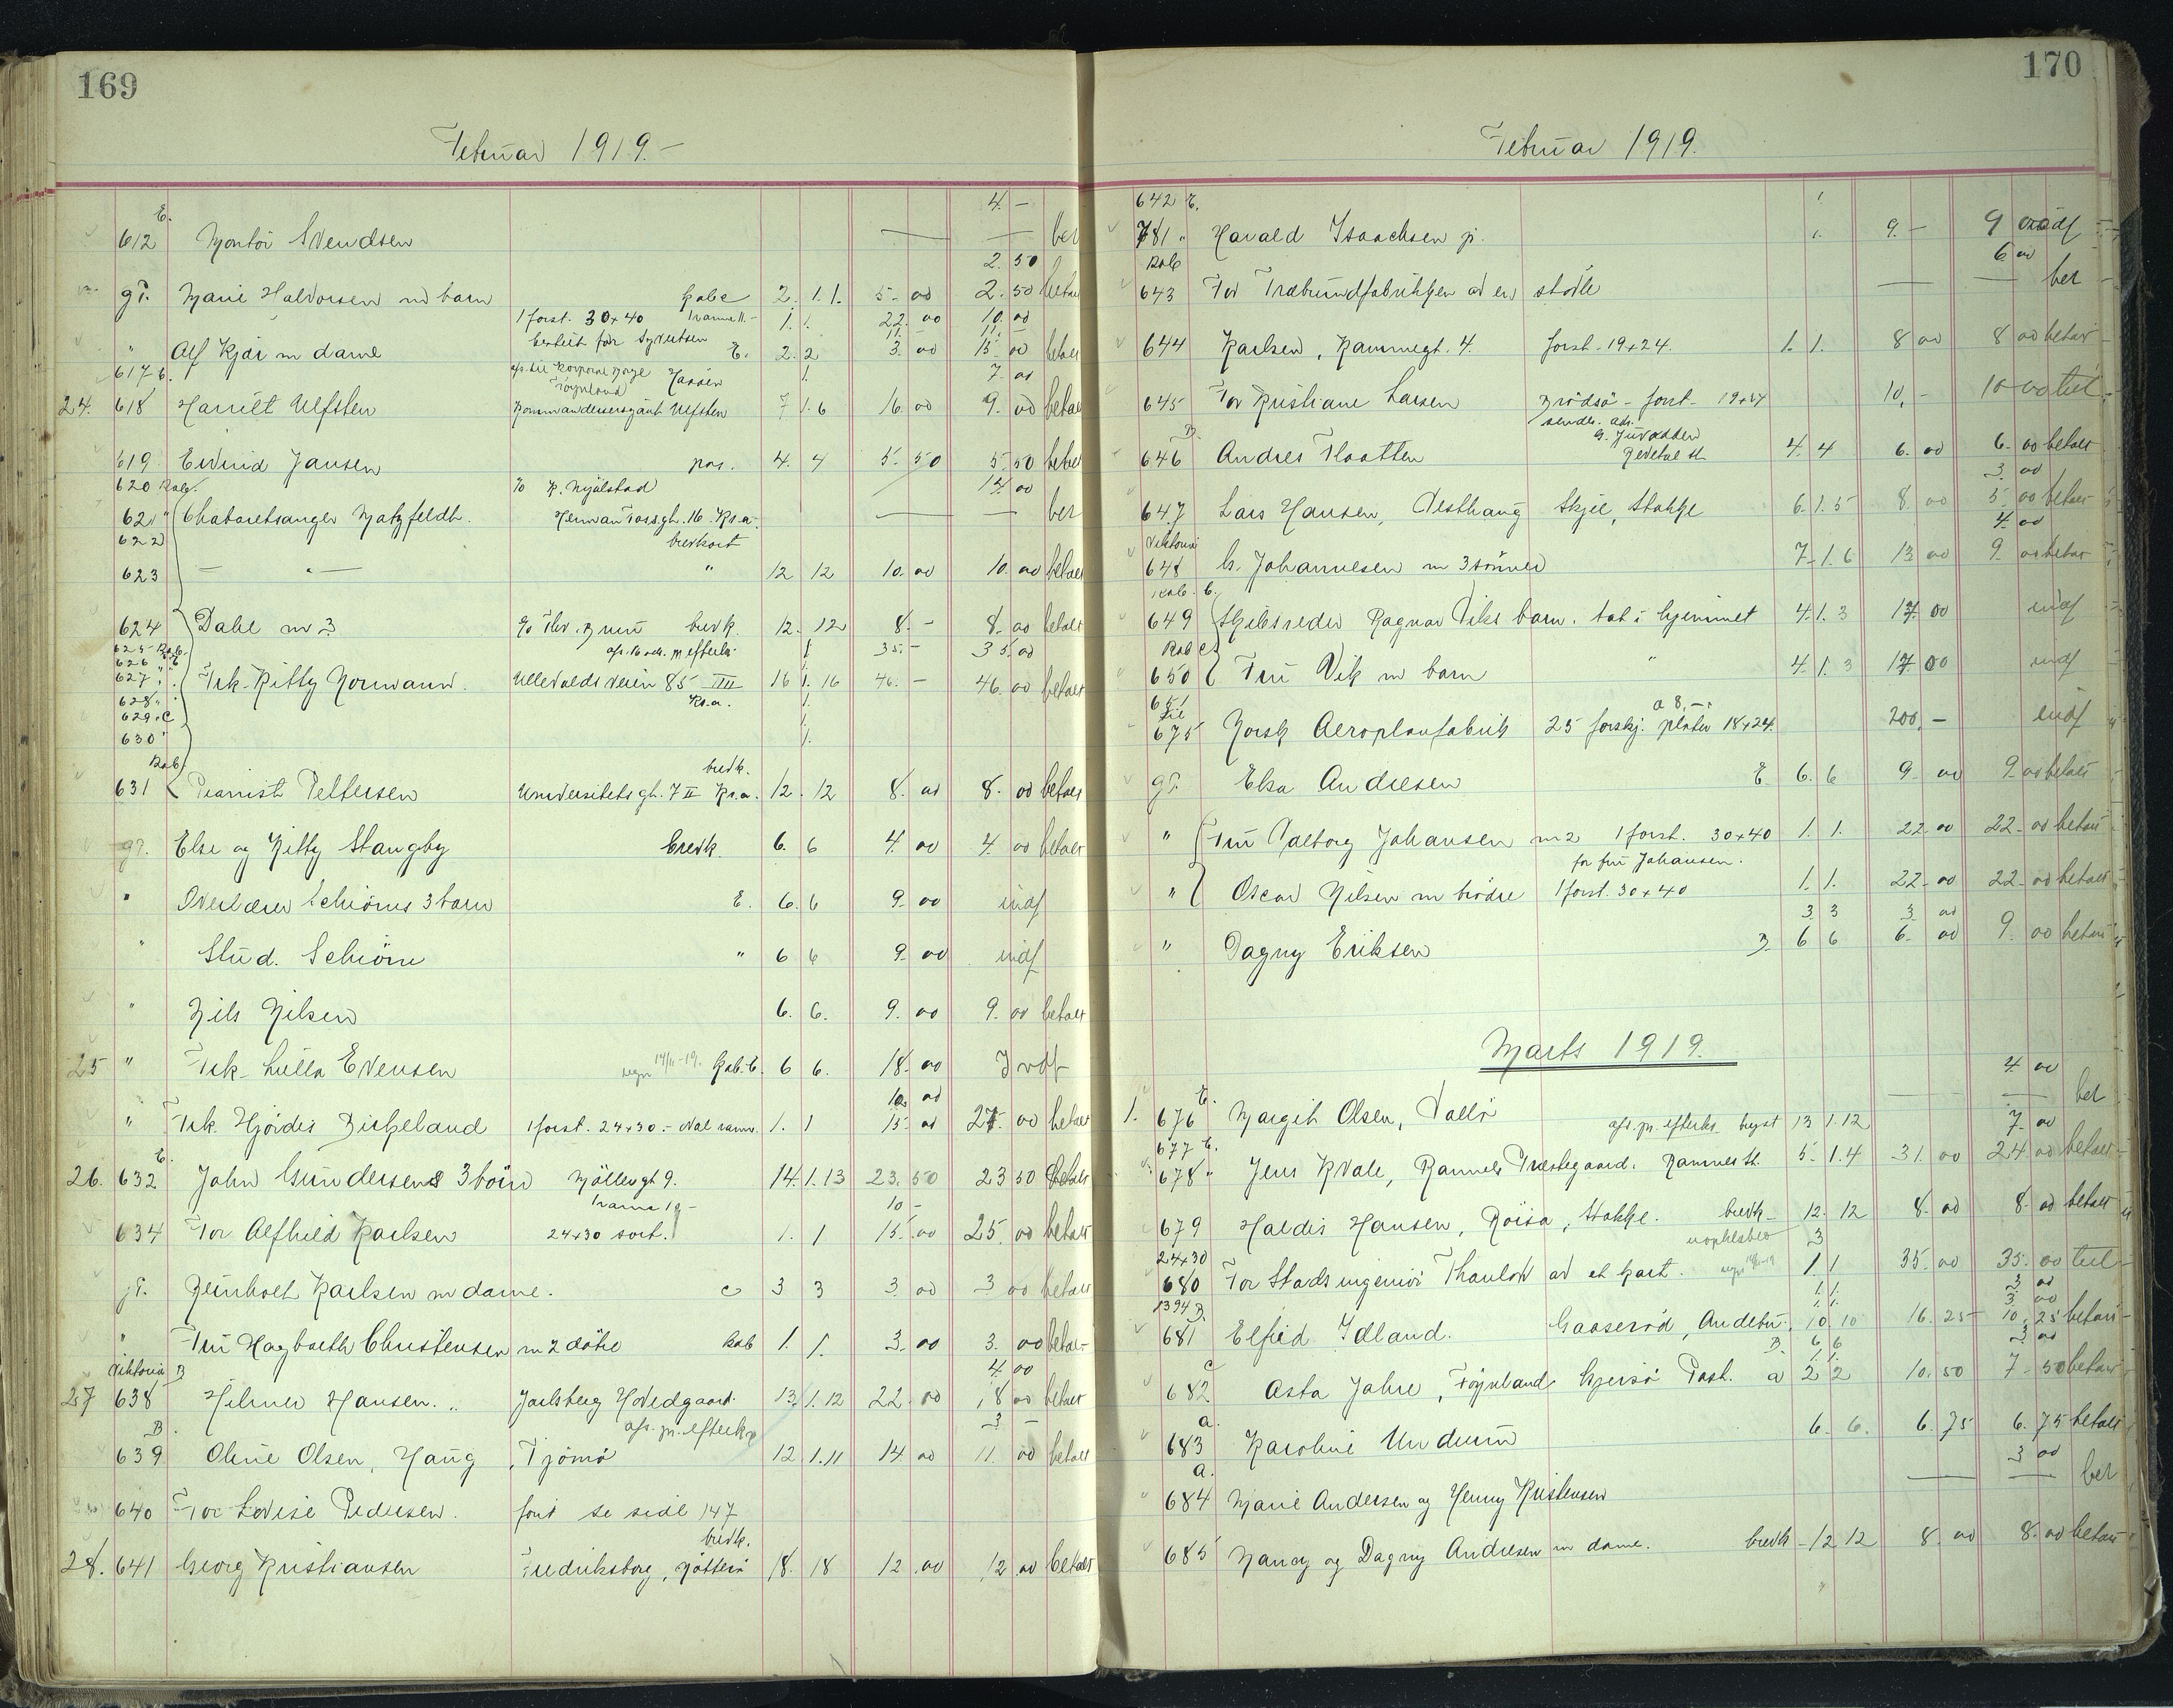 169
Februar 1919.-
E. 4. -
612 Montör Svendsen — — ber
2. 50
gT. Marie Halvorsen m barn Kabc 2. 1. 1. 5. 00 2. 50 betalt
1 forst. 30x40 1. 1. 22. 00 10. 00
11. - 11. -
" Alf Kjär m dame E. 2. 2 3. 00 15. 00 betalt
617 b. 1. 7. 00
24. 618 Harriet Ulfsten Kommandersergánt Ulfsten 7 1. 6 16. 00 9. 00 betalt
619 Eivind Jansen pas. 4. 4 5. 50 5. 50 betalt
620 Kab. % K. Mjälstad 14. 00
621 " Chabaretsanger Matzfeldh. Herman Fossgt. 16. Kr.a. — — ber
622 brevkort
623 — " — " 12 12 10. 00 10. 00 betalt
624 Dahl m 3 % Thv. Bruu brevk. 12. 12 8. - 8. 00 betalt
625 Kab. afs. 16 m. pr efterkr. 1 35. - 35. 00
626 " E
627 " Frk. Kitty Normann. Ullevoldsveien 85 IIII 16 1. 16 46. - 46. 00 betalt
628 " Kr.a. 1.
629 " C 1.
630 " 1.
Kab. brevk.
631 Pianist Pettersen Universitetsgt. 7 II Kr.a. 12. 12 8. 00 8. 00 betalt
gT. Else og Kitty Stangby brevk. 6. 6 4. 00 4. 00 betalt
" Overlærer Schiöns 3 barn E. 6. 6 9. 00 indf
" Stud. Schiönn " 6 6 9. 00 indf
" Nils Nilsen 6. 6. 9. 00 9. 00 betalt
25 " Frk. Lulla Evensen Kab. E. 6 6. 18. 00 Indf
10. 00
" Frk. Hjördis Birkeland 1 forst. 24x30.- oval ramme. 1. 1 15. 00 27. 00 betalt
E.
26. 632 John Gundersens 3 börn Möllergt 9. 14. 1. 13 23. 50 23 50 betalt
1 ramme 10 - 10 -
634 For Alfhild Karlsen 24x30 sort. 1. 1 15. 00 25. 00 betalt
gT. Reinholt Karlsen m dame. c 3 3 3. 00 3 00 betalt
" Fru Hagbarth Christensen m 2 dötre Kab 1. 1. 3. 00 3. 00 betalt
Viktoria B 4. 00
27 638 Hilmer Hansen. " Jarlsberg Hovedgaard. 13. 1. 12 22. 00 18 00 betalt
B. afs. pr. efterkr. 3 -
639 Oline Olsen, Haug, Tjömö 12 1. 11 14. 00 11. 00 betalt
640 For Lovise Pedersen. forst se side 147
brevk.
28. 641 Georg Kristiansen Fredriksborg, Nötterö 18. 18 12. 00 12. 00 betalt
170
Februar 1919.
642 E. 1
781 " Harald Isaachsen jr. 1. 9. - 9 00 indf
Kab 6. 00
643 For Træbundfabrikken af en stövle — — ber
644 Karlsen, Rammegt. 4. forst. 19x24. 1. 1. 8 00 8 00 betalt
645 For Kristiane Larsen Brödsö - forst - 19x24 10. - 10 00 tul
sendes. adr.
B.
646 Andres Flaatten 4. 4 6. 00 6. 00 betalt
3. 00
647 Lars Hansen, Vesthaug Skjee, Stokke 6. 1. 5 8. 00 5. 00 betalt
Viktoria 4. 00
648 G. Johannesen m 3 sönner 7. 1. 6 13 00 9. 00 betalt
Kab. E.
649 Skibsreder Ragnar Viks barn. tat i hjemmet 4. 1. 3 17. 00 indf
Kab
650 Fru Vik m barn " 4. 1. 3 17. 00 indf
651 a 8. -
til
675 Norsk Aeroplanfabrik 25 forskj. plater 18x24. 200. - indf
gT. Elsa Andresen E. 6. 6 9. 00 9. 00 betalt
" Fru Valborg Johansen m 2 1 forst. 30x40 1. 1. 22. 00 22. 00 betalt
for fru Johansen.
" Oscar Nilsen m brödre 1 forst. 30x40 1. 1. 22. 00 22. 00 betalt
3. 3 3. 00
" Dagny Eriksen B. 6 6 6. 00 9. 00 betalt
Marts 1919.
E. 4. 00
1. 676 Margit Olsen, Vallö — — bet
677 E. afs. pr. efterkr. bryst 13 1. 12 7. 00
678 " Jens Kvale, Ramnes Præstegaard. Ramnes st. 5. 1. 4 31. 00 24. 00 betalt
679 Haldis Hansen, Röisa, Stokke. brevk. 12. 12 8. 00 8. 00 betalt
24x30 uopklæbet 3
680 For Stadsingeniör Thaulow af et kart. 1. 1 35. 00 35. 00 tul
1. 1. 3. 00
1394 B. 1. 1. 3 00
681 Elfrid Idland. Gaaserød, Andebu. 10. 10 16. 25 10. 25 betalt
B. 6 6 3 00
c 1. 1.
682 Asta Jahre, Föynland Gjersö Post. a 2 2 10. 50 7. 50 betalt
a.
683 Karoline Undrum 6. 6. 6. 75 6. 75 betalt
a. 3 00
684 Marie Andersen og Jenny Kristensen — — ber
685 Nancy og Dagny Andresen m dame. brevk - 12 12 8. 00 8. 00 betalt